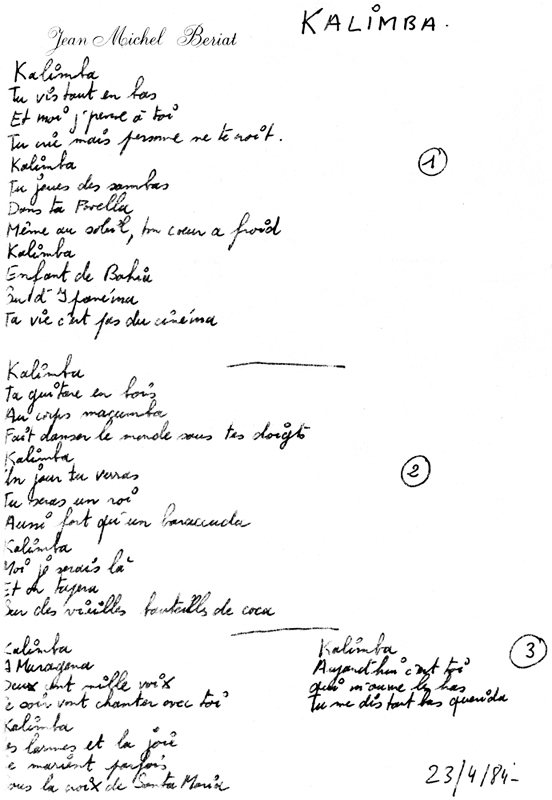 Jean Michel Beriat
KALIMBA.
Kalimba
Tu vis tout en bas
Et moi j'pense à toi
Tu cries mais personne ne te croit.
Kalimba
Tu joues des sambas
Dans ta Favella
Même au soleil, ton coeur a froid
Kalimba
Enfant de Bahia
Ou d'Ipanéma
Ta vie c'est pas du cinéma
1
Kalimba
Ta guitare en bois
Au corps macumba
Fait danser le monde sous tes doigts
Kalimba
Un jour tu verras
Tu seras un roi
Aussi fort qu'un baraccuda
Kalimba
Moi je serais là
Et on tapera
Sur des vieilles bouteilles de coca
2
Kalimba
A Maracena
Deux cent mille voix
Ce soir vont chanter avec toi
Kalimba
Les larmes et la joie
Se marient parfois
Sous la croix de Santa Maria
Kalimba
Aujourd'hui c'est toi
qui m'ouvre les bras
Tu me dis tout bas querida
3
23/4/84-